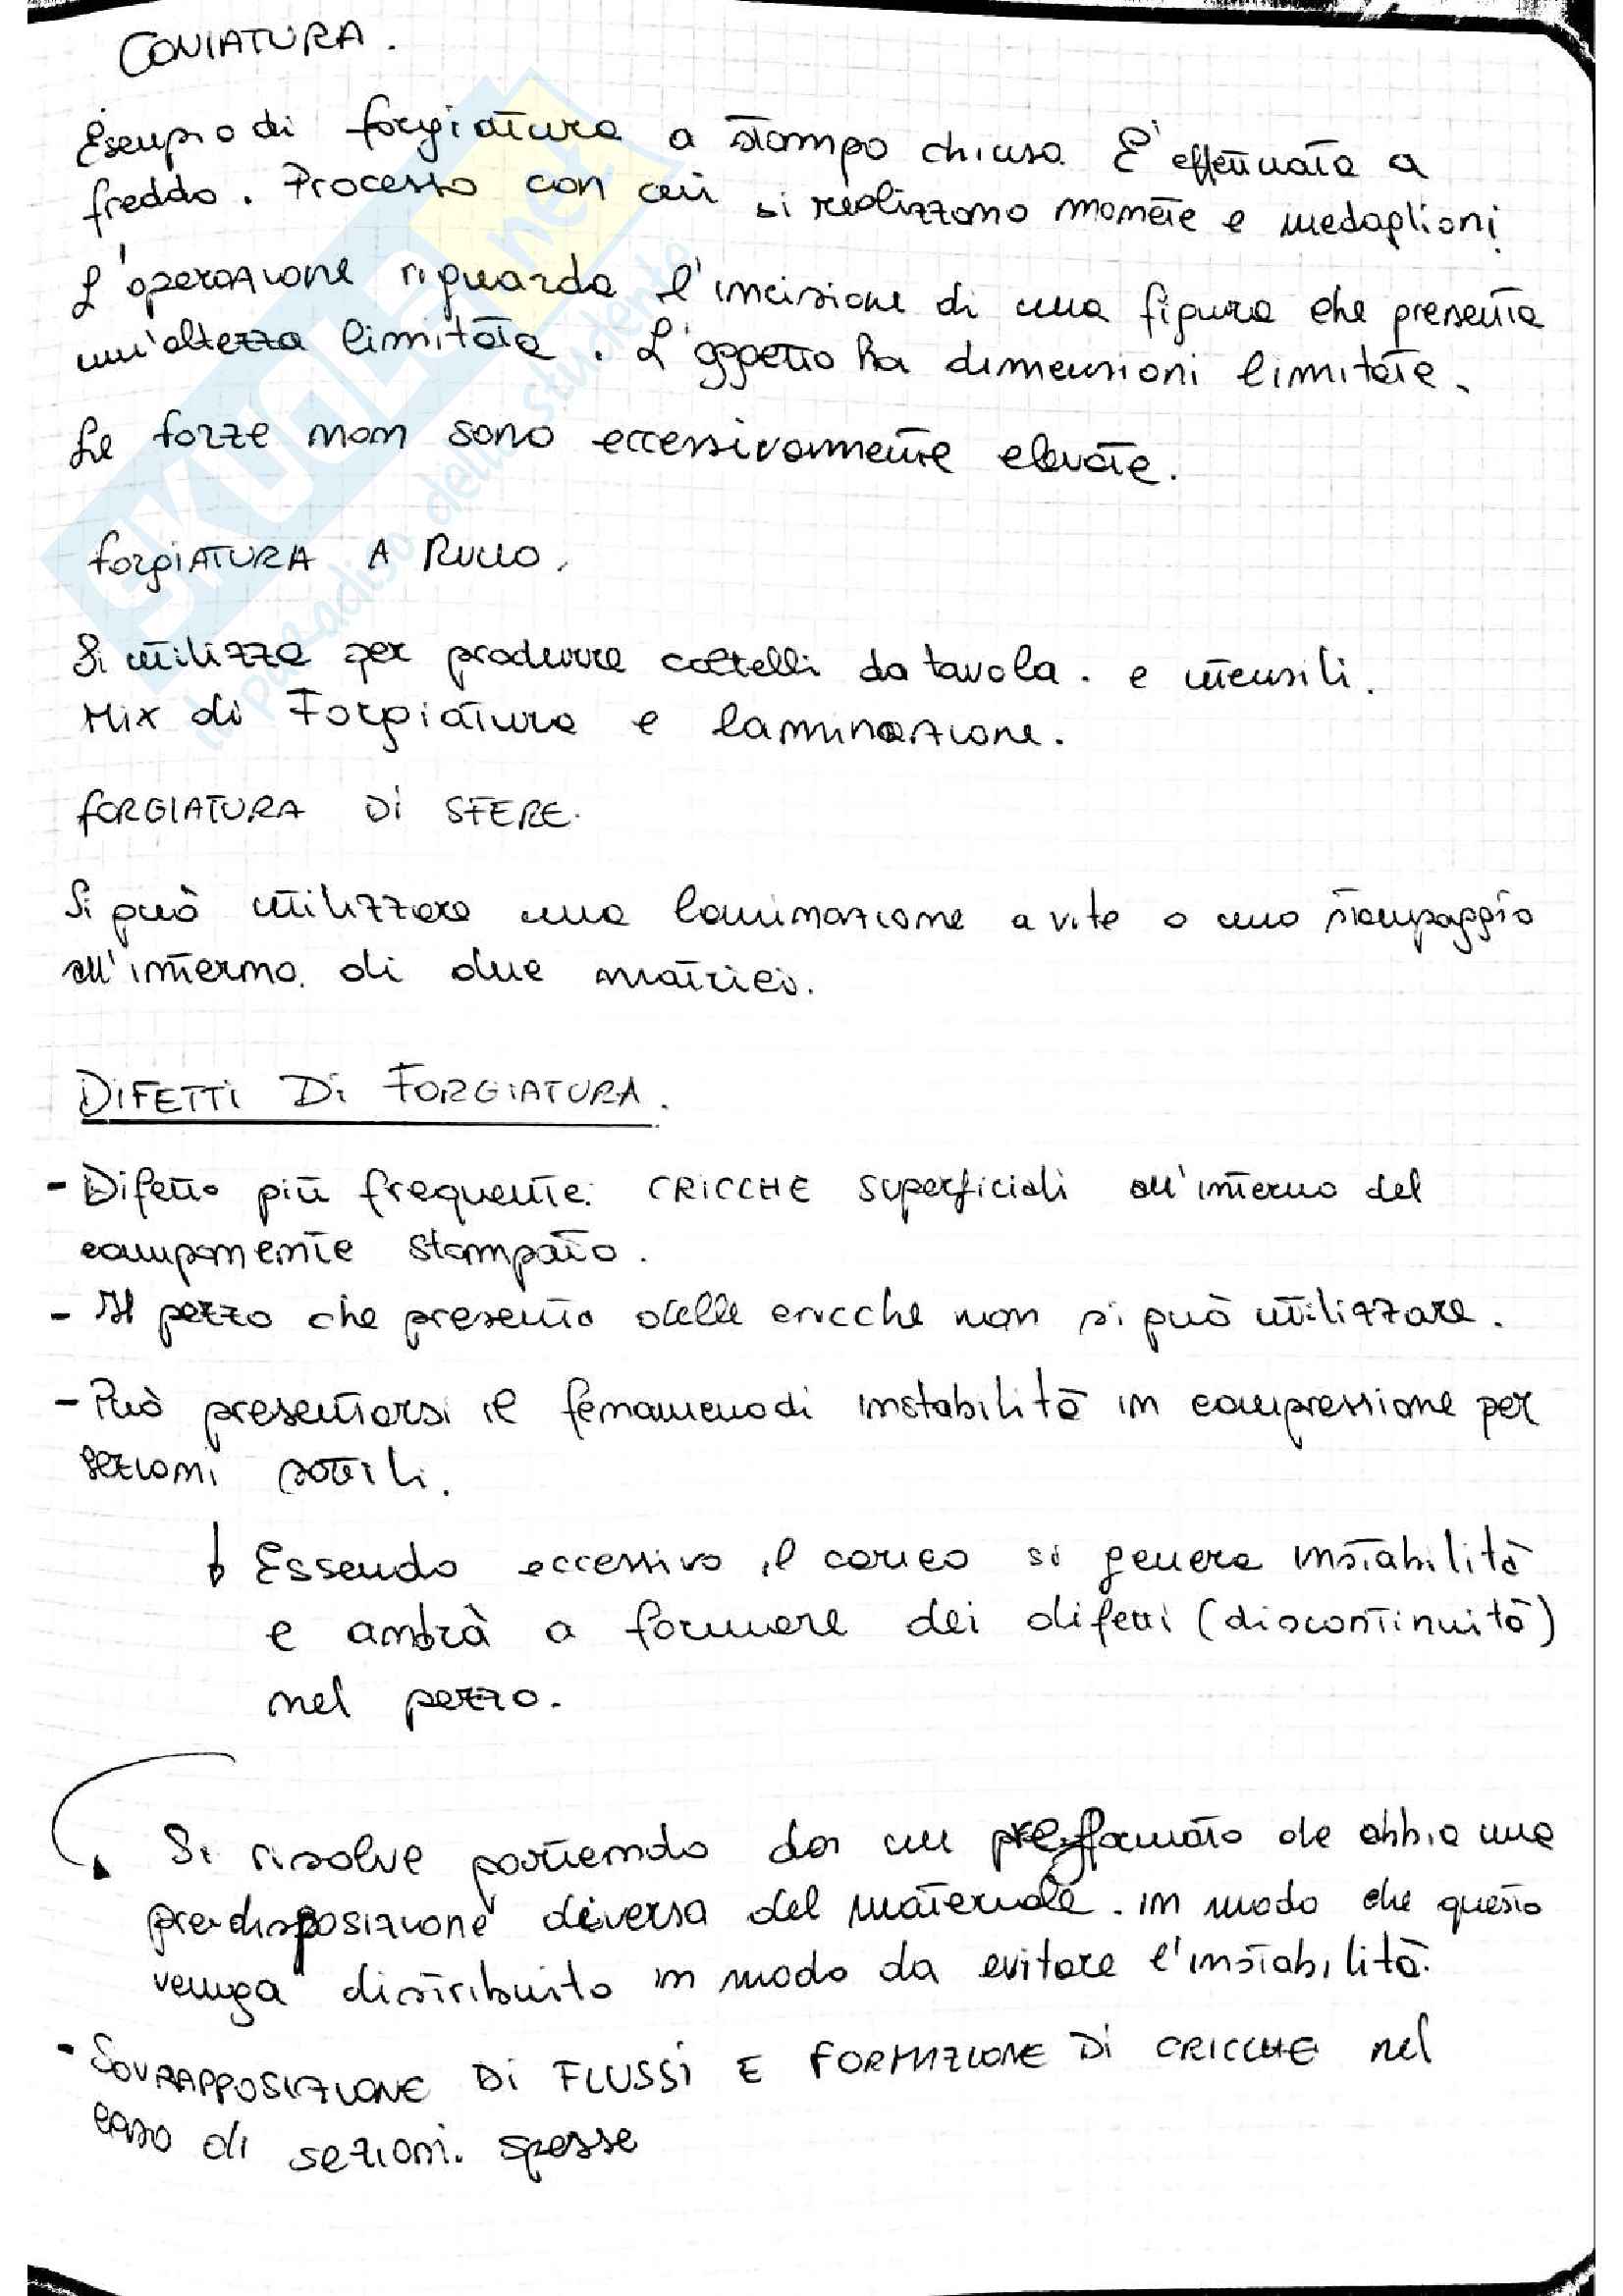 CONIATURA.
Esempio di forgiatura a stampo chiuso. E' effettuata a
freddo. Processo con cui si realizzano monete e medaglioni.
L'operazione riguarda l'incisione di una figura che presenta
un'altezza limitata. L'oggetto ha dimensioni limitate.
Le forze non sono eccessivamente elevate.
forgiATURA A RULLO.
Si utilizza per produrre coltelli da tavola. e utensili.
Mix di Forgiatura e laminazione.
fORGIATURA Di SFERE.
Si può utilizzare una laminazione a vite o uno stampaggio
all'interno. di due matrici.
DIFETTI Di FORGIATURA.
- Difetto più frequente: CRICCHE superficiali all'interno del
componente stampato.
- Il pezzo che presenta delle cricche non si può utilizzare.
- Può presentarsi il fenomeno di instabilità in compressione per
sezioni sottili.
Essendo eccessivo il carico si genera instabilità
e andrà a formare dei difetti (discontinuità)
nel pezzo.
Si risolve partendo da un preformato che abbia una
predisposizione diversa del materiale. in modo che questo
venga distribuito in modo da evitare l'instabilità.
- SOVRAPPOSIZIONE Di FLUSSi E FORMAZIONE Di CRICCHE nel
caso di sezioni. spesse
SKUOLA.net
il paradiso dello studente